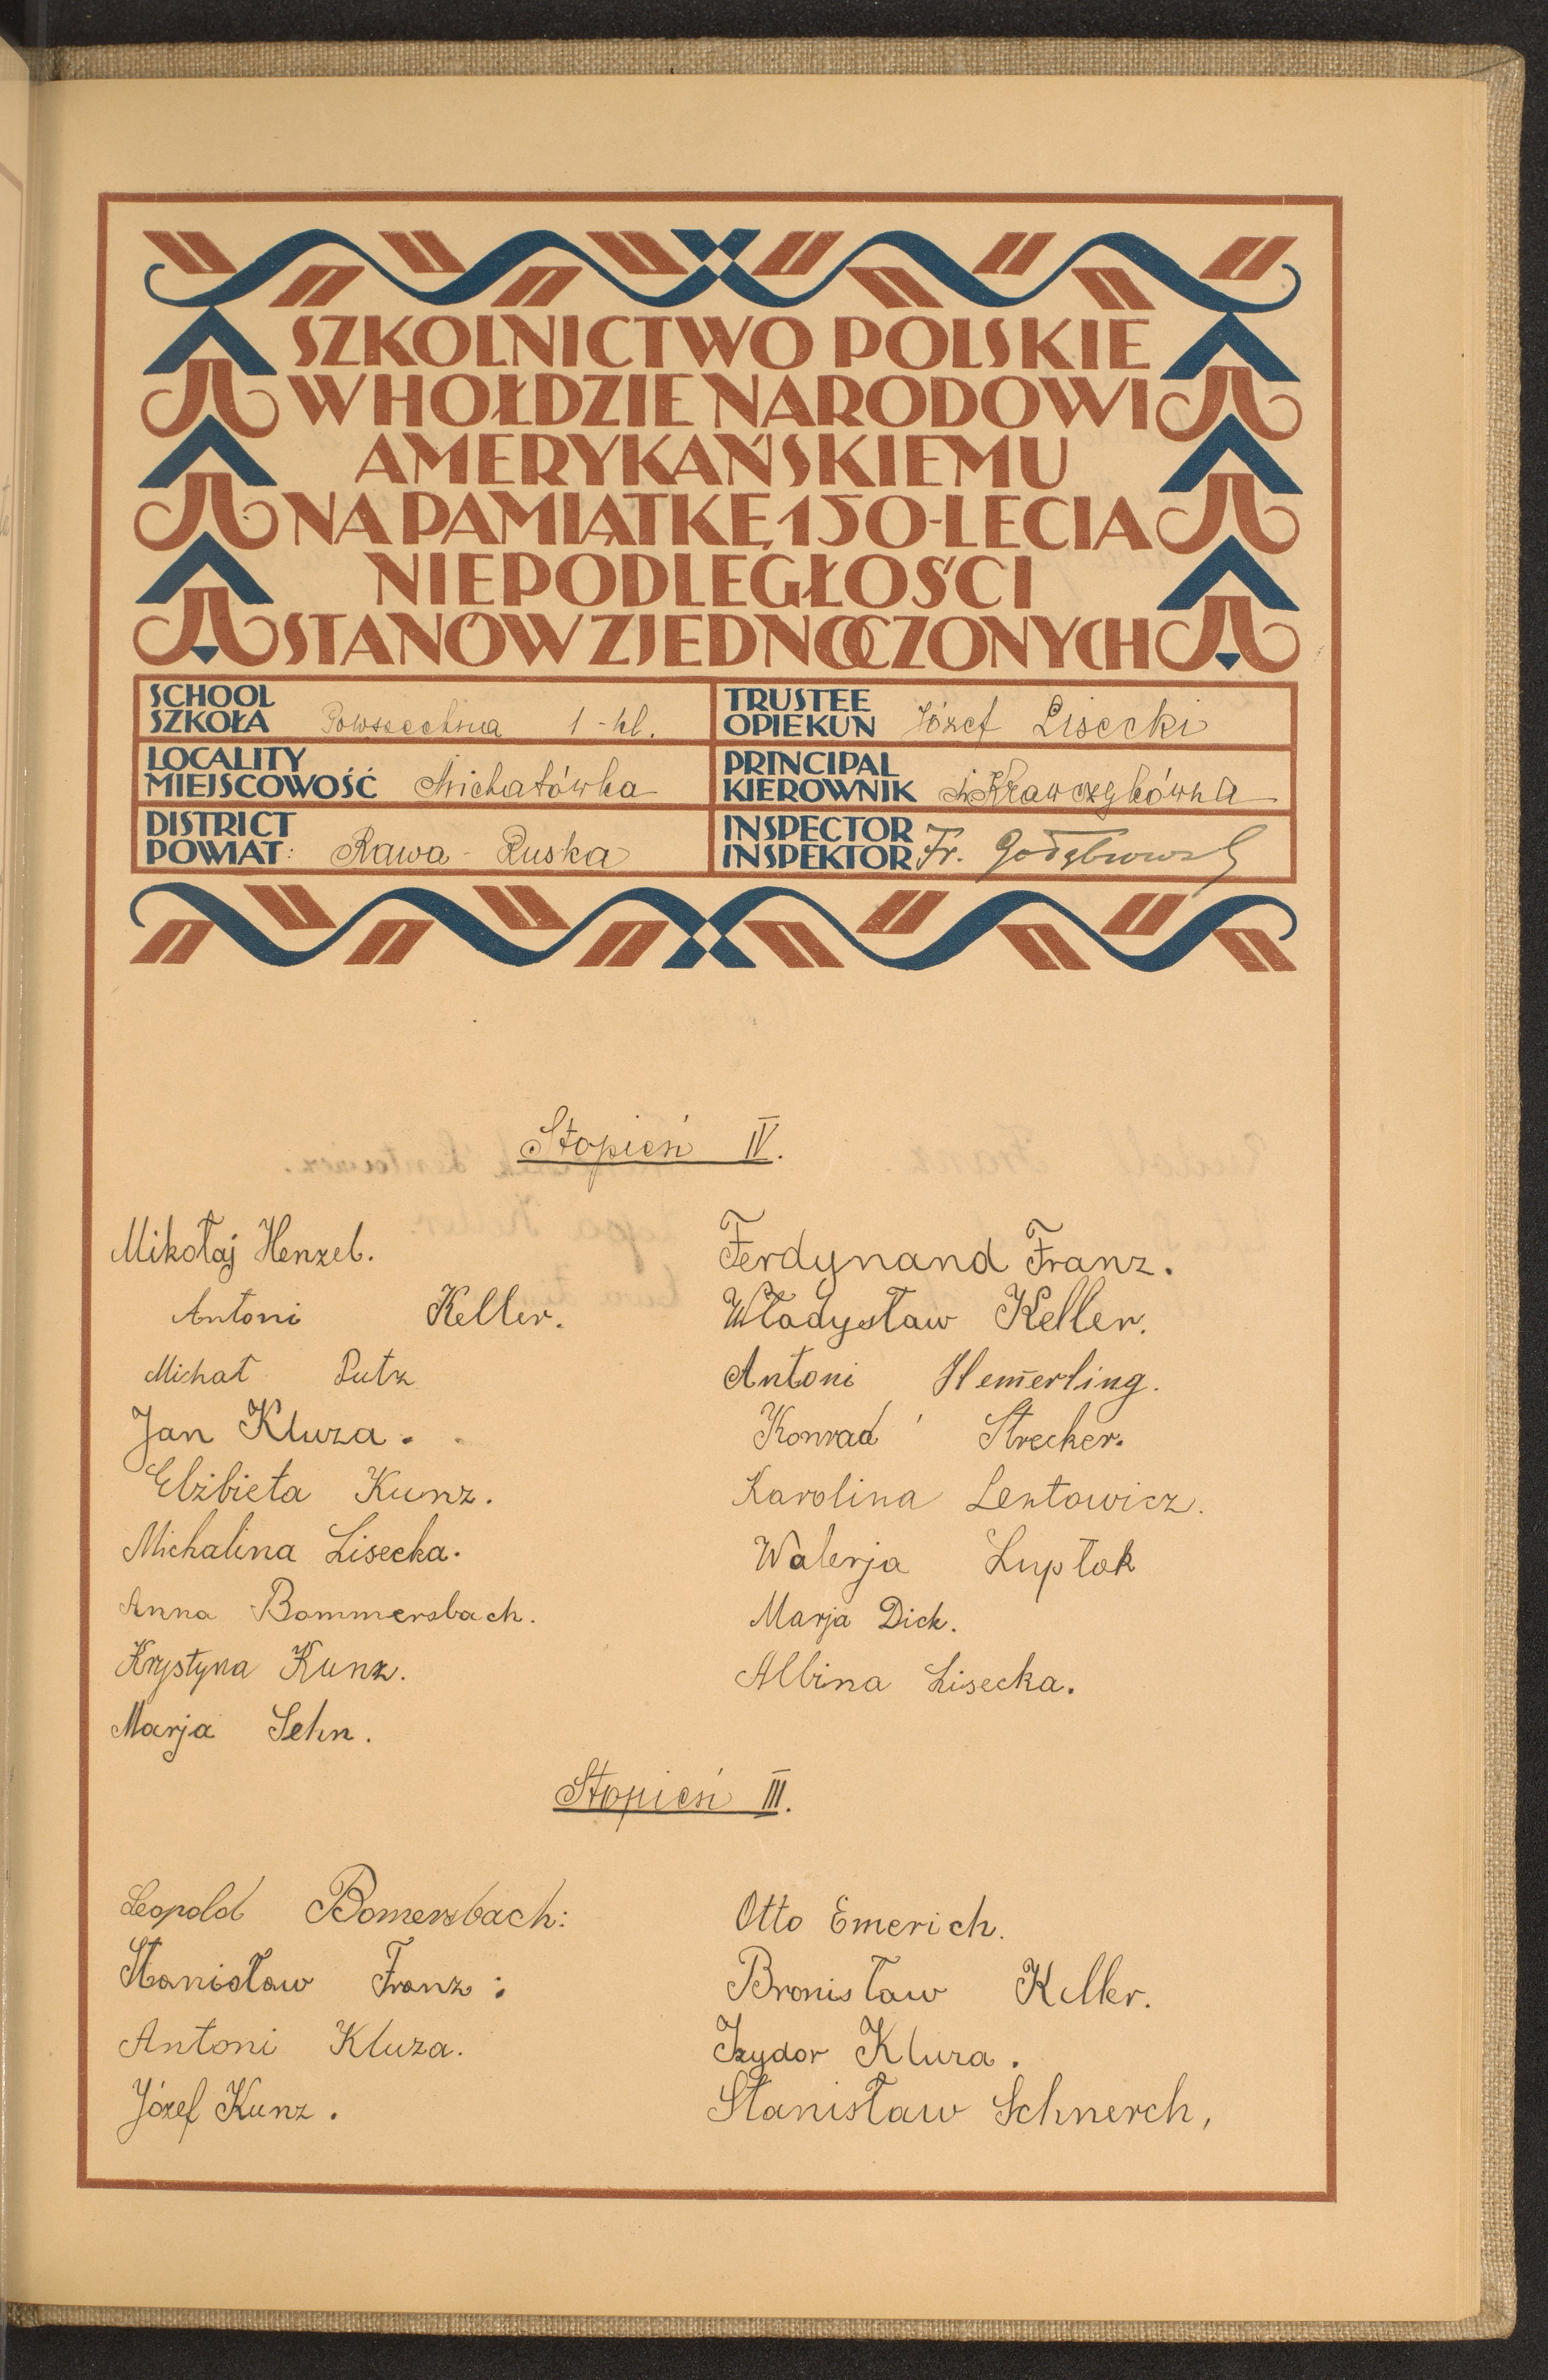 SZKOLNICTWO POLSKIE
W HOŁDZIE NARODOWI
AMERYKAŃSKIEMU
NA PAMIĄTKĘ 150-LECIA
NIEPODLEGŁOŚCI
STANÓW ZJEDNOCZONYCH
SCHOOL
SZKOŁA Powszechna 1-kl.
TRUSTEE
OPIEKUN Józef Lisecki
LOCALITY
MIEJSCOWOŚĆ Michałówka
PRINCIPAL
KIEROWNIK Krawczykówna
DISTRICT
POWIAT: Rawa-Ruska
INSPECTOR
INSPEKTOR Fr.
Stopień IV.
Mikołaj Henzel.
Ferdynand Franz.
Antoni Keller.
Władysław Keller.
Michał Putz
Antoni Hem̄erling.
Jan Kluza.
Konrad Strecker.
Elżbieta Kunz.
Karolina Lentowicz.
Michalina Lisecka.
Walerja Lupłak
Anna Bommersbach.
Marja Dick.
Krystyna Kunz.
Albina Lisecka.
Marja Sehn.
Stopień III.
Leopold Bomersbach:
Otto Emerich.
Stanisław Franz:
Bronisław Keller.
Antoni Kluza.
Izydor Kluza.
Józef Kunz.
Stanisław Schnerch,